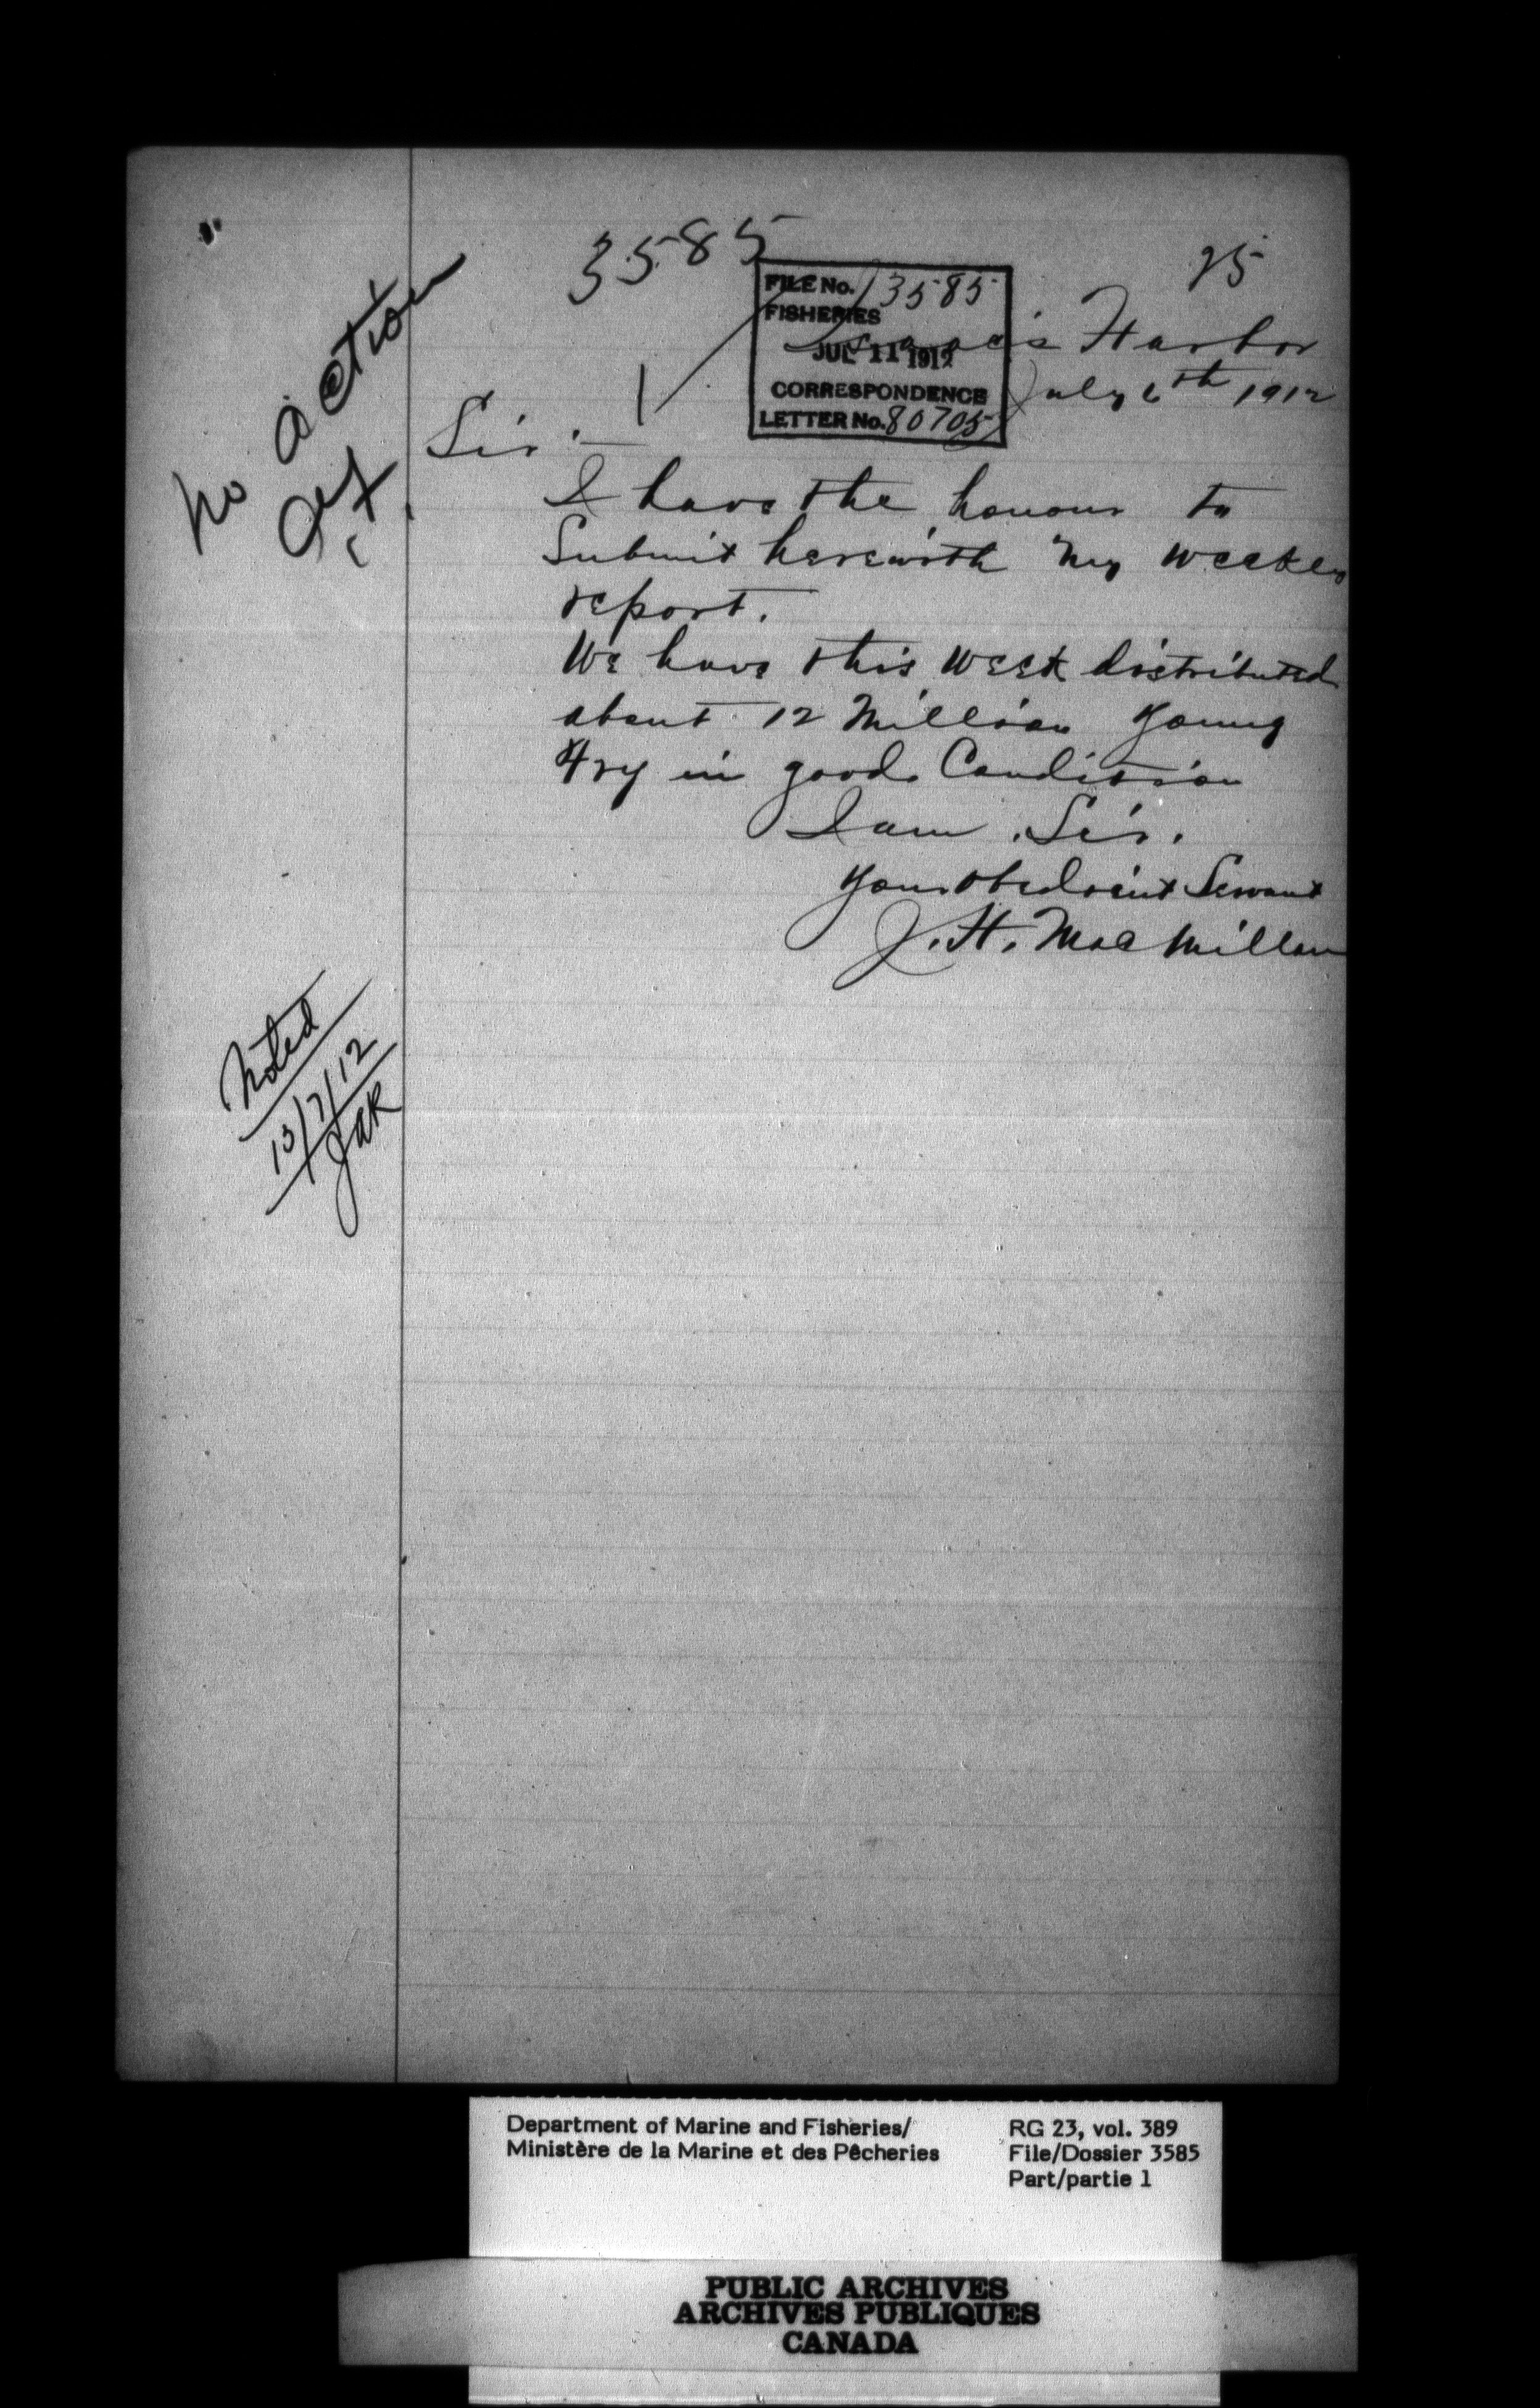 3585
25
FILE No. 3585
FISHERIES
JUL 11 1912
CORRESPONDENCE
LETTER No. 80705
Isaac's Harbor
July 6th 1912
Sir:—
I have the honour to
Submit herewith my weekly
report.
We have this week distributed
about 12 Million young
fry in good Condition
I am, Sir.
Your obedient Servant
J. H. MacMillan
no action
Noted
13/7/12
JAR
Department of Marine and Fisheries/
Ministère de la Marine et des Pêcheries
RG 23, vol. 389
File/Dossier 3585
Part/partie 1
PUBLIC ARCHIVES
ARCHIVES PUBLIQUES
CANADA